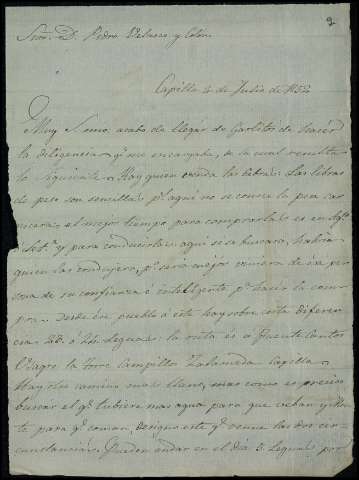 2
Snor. D. Pedro Velasco y Colón.
Capilla 4 de Julio de 1852
Muy S. mio, acabo de llegar de Garlitos de hacer
la diligencia q.e me encargaba, de la cual resulta
lo siguiente. Hay quien venda las
de peso son semillas p.r aqui no se conoce la
el mejor tiempo para comprarlas es en Ag.to
y para conducirlas aqui si se buscara, habria
quien las condujera, p.o será mejor viniera de esa per
sona de su confianza é inteligente p.a hacer la com
pra. Desde ese pueblo á este hay sobre corta diferen
cia 20 ó 24 leguas: la ruta es á Fuente Cantos
la Torre Campillo Zalamea Capilla.
Hay otro camino mas llano, mas como es preciso
buscar el q.e tubiere mas agua para que veban y
para q.e coman, designo este q.e reune las dos cir
cunstancias. Pueden andar en el dia 3 leguas por